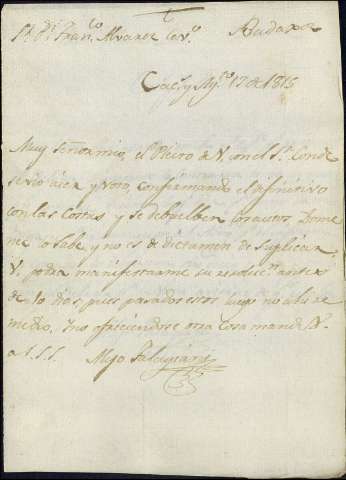 Sr. Dn. Franco. Alvarez Cevo. Badaxoz
Cacs. y Mzo. 17 de 1815
Muy Señor mio, el Pleito de V. con el Sr. Conde
se vio aier y voto, confirmando el difinitivo
con las Costas y se debuelben los autos, Dome
ne lo sabe, y no es de dictamen de Suplicar;
V. podra manifestarme su resolucn. antes
de 10 dias, pues pasados estos luego no abra re
medio, Ino ofreciendose otra Cosa mande V.
a S. S. Alejo